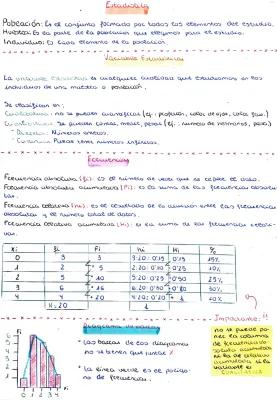 Estadística
Población: Es el conjunto formado por todos los elementos del estudio.
Muestra: Es la parte de la población que elegimos para el estudio.
Individuo: Es cada elemento de la población.
Variables Estadísticas
La variable estadística es cualquier cualidad que estudiamos en los
individuos de una muestra o población.
Se clasifican en:
Cualitativas: no se pueden cuantificar (ej: profesión, color de ojos, color
Cuantitativas: Se pueden contar, medir, pesar (ej.: número de hermanos, peso)
Discreta: Números enteros.
Continua: Puede tener números infinitos.
Frecuencias
Frecuencia absoluta (fi): es el número de veces que se repite el dato.
Frecuencia absoluta acumulada (Fi): es la suma de las frecuencias absolu-
tas.
Frecuencia relativa (hi): es el resultado de la división entre las frecuencias
absolutas y el número total de datos.
Frecuencia relativa acumulada (Hi): es la suma de las frecuencias relati-
vas.
xi fi Fi hi Hi %
0 3 3 3:20=0'15 0'15 15%
1 2 5 2:20=0'10 10%
2 5 10 5:20=0'25 25%
3 6 16 6:20=0'30 30%
4 4 20 4:20=0'20 1 20%
N=20 1
Importante!!
Diagrama de barras
* Las barras de los diagramas
no se tienen que juntar
* La línea verde es el polígo-
no de frecuencias.
no se puede po-
ner la columna
de frecuencia ab-
soluta acumulada
ni la de relativa
acumulada si la
variable es
CUALITATIVA
6
5
4
3
2
1
0 1 2 3 4